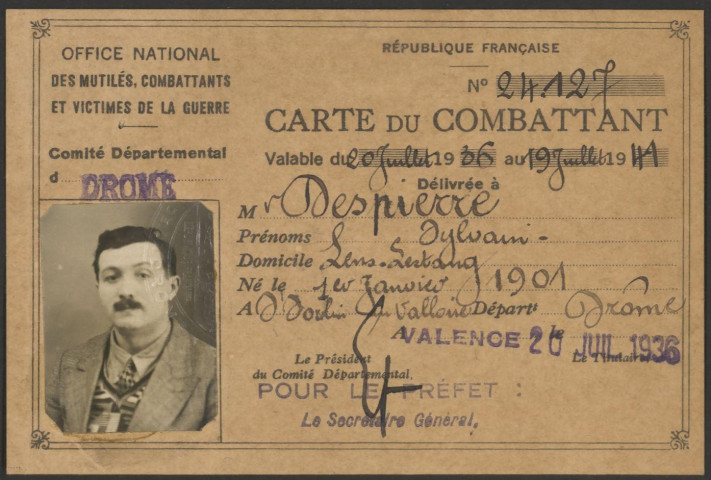 OFFICE NATIONAL
DES MUTILÉS, COMBATTANTS
ET VICTIMES DE LA GUERRE
Comité Départemental
d DROME
RÉPUBLIQUE FRANÇAISE
N° 24.127
CARTE DU COMBATTANT
Valable du 20 Juillet 1936 au 19 Juillet 1941
Délivrée à
Mr Despierre
Prénoms Sylvain -
Domicile Lens-Lestang
Né le 1er Janvier 1901
A St Sorlin en Valloire Départt Drôme
A VALENCE le 20 JUIL 1936
Le Président
du Comité Départemental,
Le Titulaire
POUR LE PRÉFET :
Le Secrétaire Général,